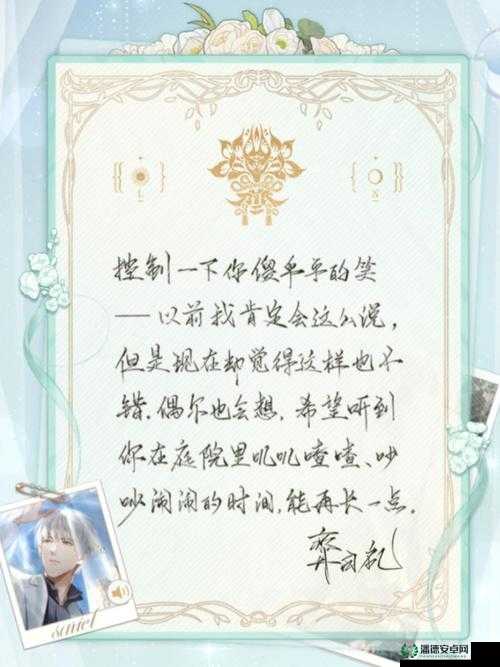 控制一下你傻乎乎的笑
——以前我肯定会这么说，
但是现在却觉得这样也不
错。偶尔也会想，希望听到
你在庭院里叽叽喳喳、吵
吵闹闹的时间，能再长一点。
齐司礼
潘德安卓网